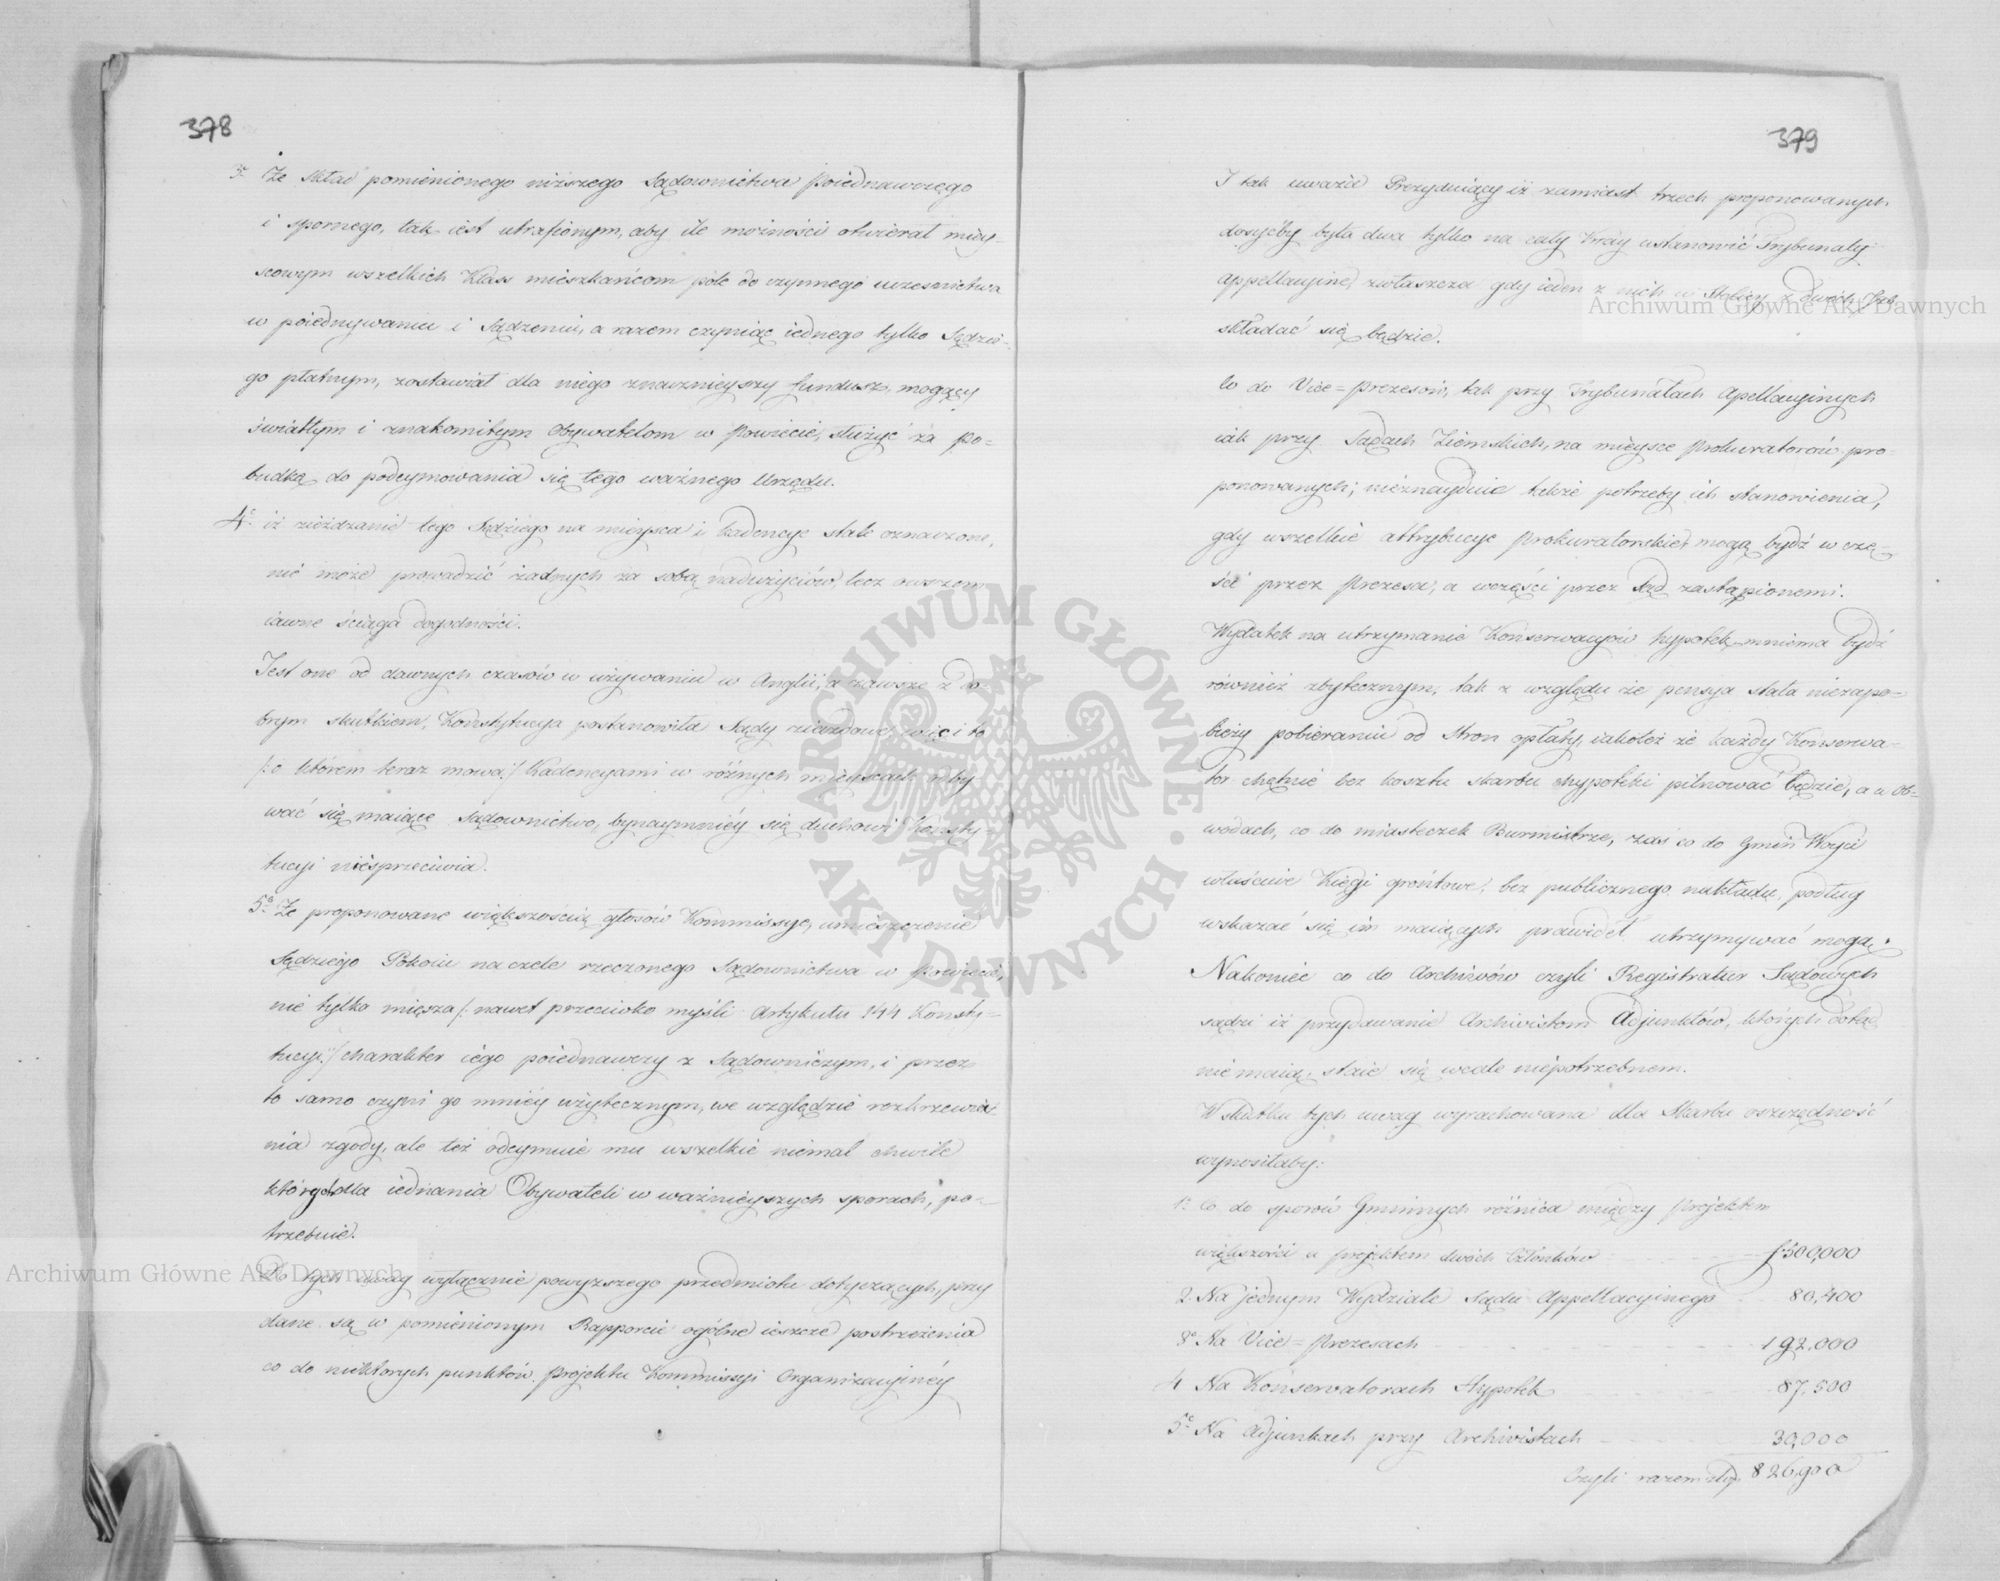 378
3º Że skład pomienionego niższego Sądownictwa Poiednawczego
i spornego, tak iest utrafionym, aby ile możności otwierał miey-
scowym wszelkich Klass mieszkańcom pole do czynnego uczesnictwa
w poiednywaniu i Sądzeniu, a razem czyniąc iednego tylko Sędzie-
go płatnym, zostawiał dla niego znacznieyszy fundusz, mogący
światłym i znakomitym Obywatelom w Powiecie, służyć za po-
budkę do podeymowania się tego ważnego Urzędu.
4º iż zieżdżanie tego Sędziego na mieysca i Kadencye stale oznaczone,
nie może prowadzić żadnych za sobą nadużyciów, lecz owszem
iawne ściąga dogodności.
Iest one od dawnych czasów w używaniu w Anglii, a zawsze z do-
brym skutkiem, Konstytucya postanowiła Sądy ziazdowe, więc i to
/: o którem teraz mowa :/ Kadencyami w różnych mieyscach odby-
wać się maiące Sądownictwo, bynaymniéy się duchowi Konsty-
tucyi niesprzeciwia.
5º Że proponowane większością głosów Kommissye, umieszczenie
Sędziego Pokoiu na czele rzeczonego Sądownictwa w Powiecie,
nie tylko miesza /: nawet przeciwko myśli Artykułu 144 Konsty-
tucyi :/ charakter iego poiednawczy z Sądowniczym, i przez
to samo czyni go mniéy użytecznym, we względzie rozkrzewia-
nia zgody, ale też odeymuie mu wszelkie niemal chwile
których dla iednania Obywateli w ważnieyszych sporach, po-
trzebuie.
Do tych uwag wyłącznie powyższego przedmiotu dotyczących, przy
dane są w pomienionym Rapporcie ogólne ieszcze postrzeżenia
co do niektorych punktów Projektu Kommissyi Organizacyinéy
379
I tak uważa Prezyduiący iż zamiast trzech proponowanych
dosyćby była dwa tylko na cały Kray ustanowić Trybunały
appellacyine, zwłaszcza gdy ieden z nich w Stolicy z dwóch Izb
składać się będzie.
Co do Vice=Prezesów, tak przy Trybunałach Apellacyinych
iak przy Sądach Ziemskich, na mieysce Prokuratorów pro-
ponowanych; nieznayduie także potrzeby ich stanowienia,
gdy wszelkie attrybucye Prokuratorskie, mogą bydź w czę-
ści przez Prezesa, a w części przez Sąd zastąpionemi.
Wydatek na utrzymanie Konserwacyów hypotek, mniema bydź
również zbytecznym, tak z względu że pensya stała niezapo-
bieży pobieraniu od Stron opłaty, iakoteż że każdy Konserwa-
tor chętnie bez kosztu skarbu hypoteki pilnować będzie, a w Ob-
wodach, co do miasteczek Burmistrze, zaś co do Gmin Woyci
właściwe Xięgi grontowe, bez publicznego nakładu, podług
wskazać się im maiących prawideł utrzymywać mogą.
Nakoniec co do Archiwów czyli Registratur Sądowych
sądzi iż przydawanie Archivistom Adjunktów, których dotąd
nie maią, staie się wcale niepotrzebnem.
W skutku tych uwag wyrachowana dla Skarbu oszczędność
wynosiłaby:
1º Co do sporów Gminnych różnica między Projektem
większości a projektem dwóch Członków f. 500,000
2 Na jednym Wydziale Sądu Appellacyinego 80,400
3º Na Vice=Prezesach 192,000
4 Na Konserwatorach Hypotek 87,500
5º Na Adjunktach przy Archivistach 30,000
Czyli razem złp. 826,900
Archiwum Główne Akt Dawnych
Archiwum Główne Akt Dawnych
ARCHIWUM GŁÓWNE · AKT DAWNYCH ·